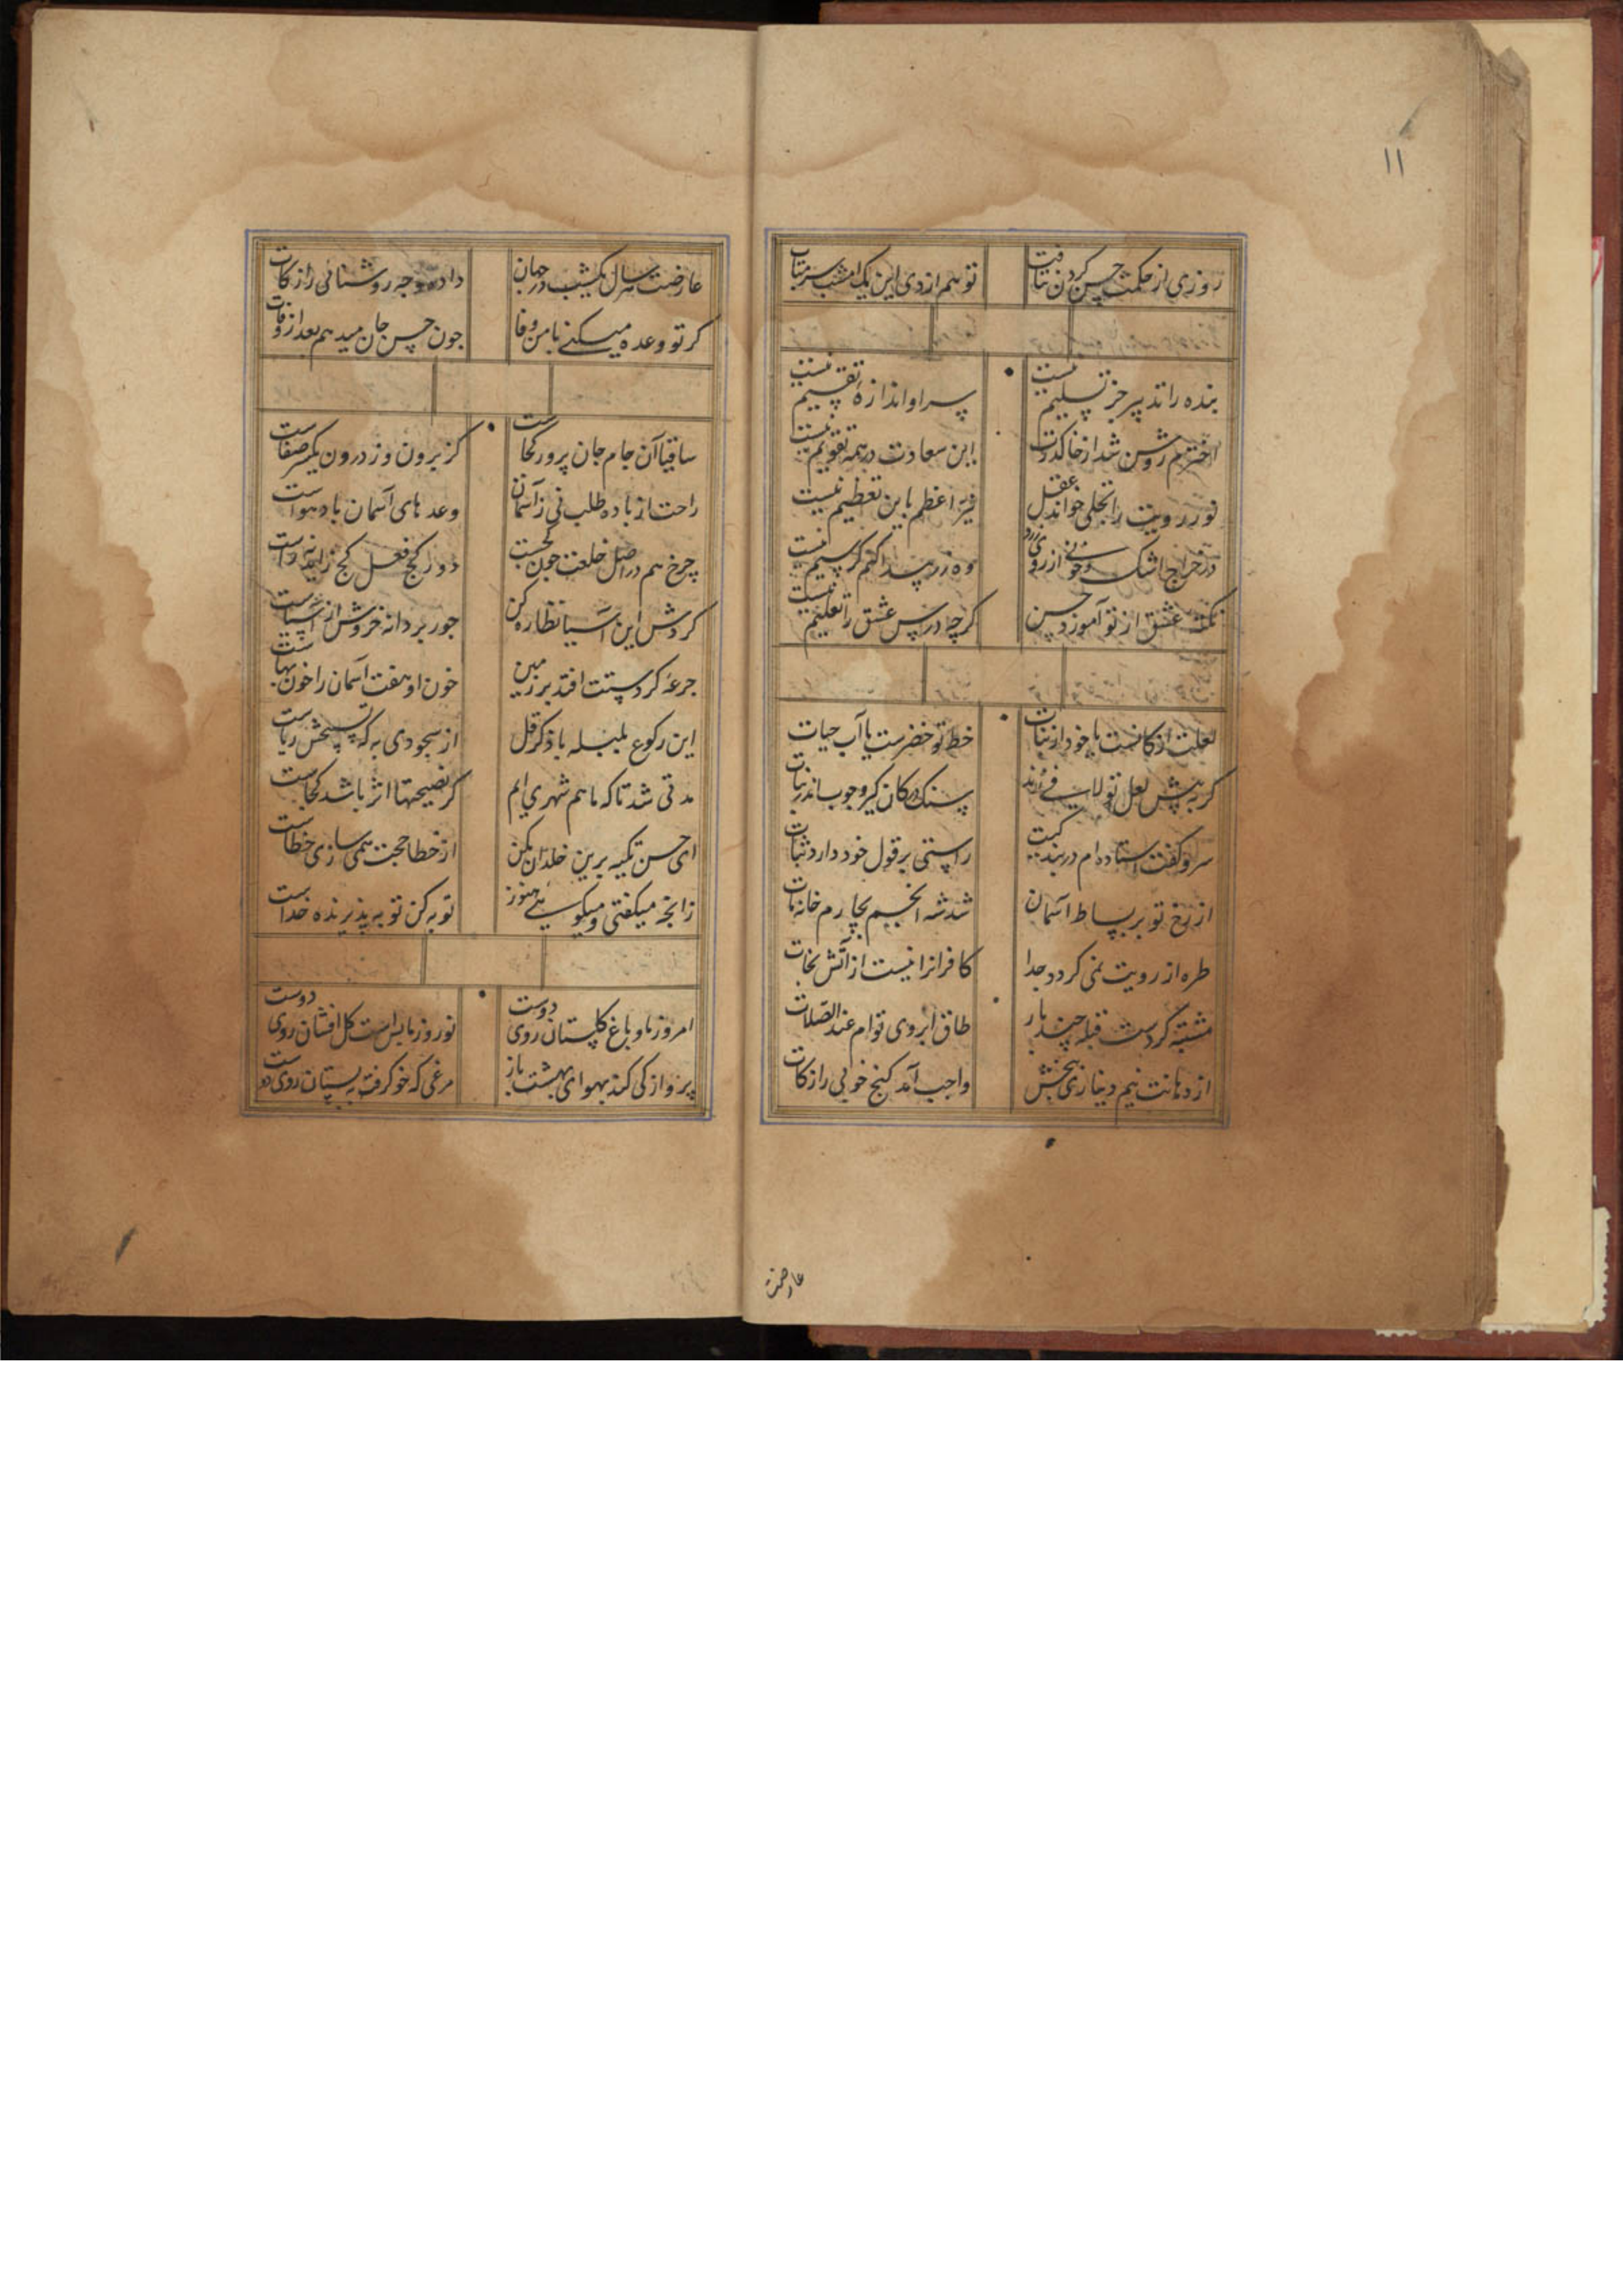 ۱۱
روزی از حکمت حسن گردن نتافت تو هم ازدی این یک امشب سر متاب
بنده را تدبیر جز تسلیم نیست پسر او اندازهٔ تقسیم نیست
اخترم روشن شد از خاک درت این سعادت در همه تقویم نیست
نور رویت را تجلی خواند عقل نیر اعظم باین تعظیم نیست
در خراج اشک خونی از روی زرد وه زر پیدا کنم گر سیم نیست
نکته عشق از تو آموزد حسن کرچه درس عشق را تعلیم نیست
لعلت از کانست یا خود از نبات خط تو خضرست یا آب حیات
کر به پیش لعل تو لافی زند سنک در کان کیر و چوب اندر نبات
سرو کفت استاده ام در بندگیت راستی بر قول خود دارد ثبات
از رخ تو بر بساط آسمان شد شه انجم بچارم خانه مات
طره از رویت نمی کردد جدا کافرانرا نیست از آتش نجات
مشتبه کردست قبله چند بار طاق ابروی توام عند الصلات
از دهانت نیم دینار ی ببخش واجب آمد کنج خوبی را زکات
عارضت
عارضت هر سال یکشب در جهان داده وجه روشنائی را زکات
کر تو وعده میکنی با من وفا جون حسن جان میدهم بعد از وفات
ساقیا آن جام جان پرور کجاست کز برون و ز درون یکسر صفاست
راحت از باده طلب نی ز آسمان وعد های آسمان باد هواست
چرخ هم در اصل خلقت جون کجست دور کج فعل کج زاید نه راست
کردش این آسیا نظاره کن جور بر دانه خروش از آسیاست
جرعهٔ کر دستت افتد بر زمین خون او هفت آسمان را خون بهاست
این رکوع بلبله با ذکر قل از سجودی به که تسبیحش ریاست
مدتی شد تا که ما هم شهری ایم کر نصیحتها اثر باشد کجاست
ای حسن تکیه برین خلدان مکن از خطا حجت همی سازی خطاست
زانچه میکفتی و میکویی هنوز توبه کن توبه پذیرنده خداست
امروز ما و باغ کلستان روی دوست نوروز ما بس است کل افشان روی دوست
پرواز کی کند بهوای بهشت باز مرغی که خو کرفت به بستان روی دوست